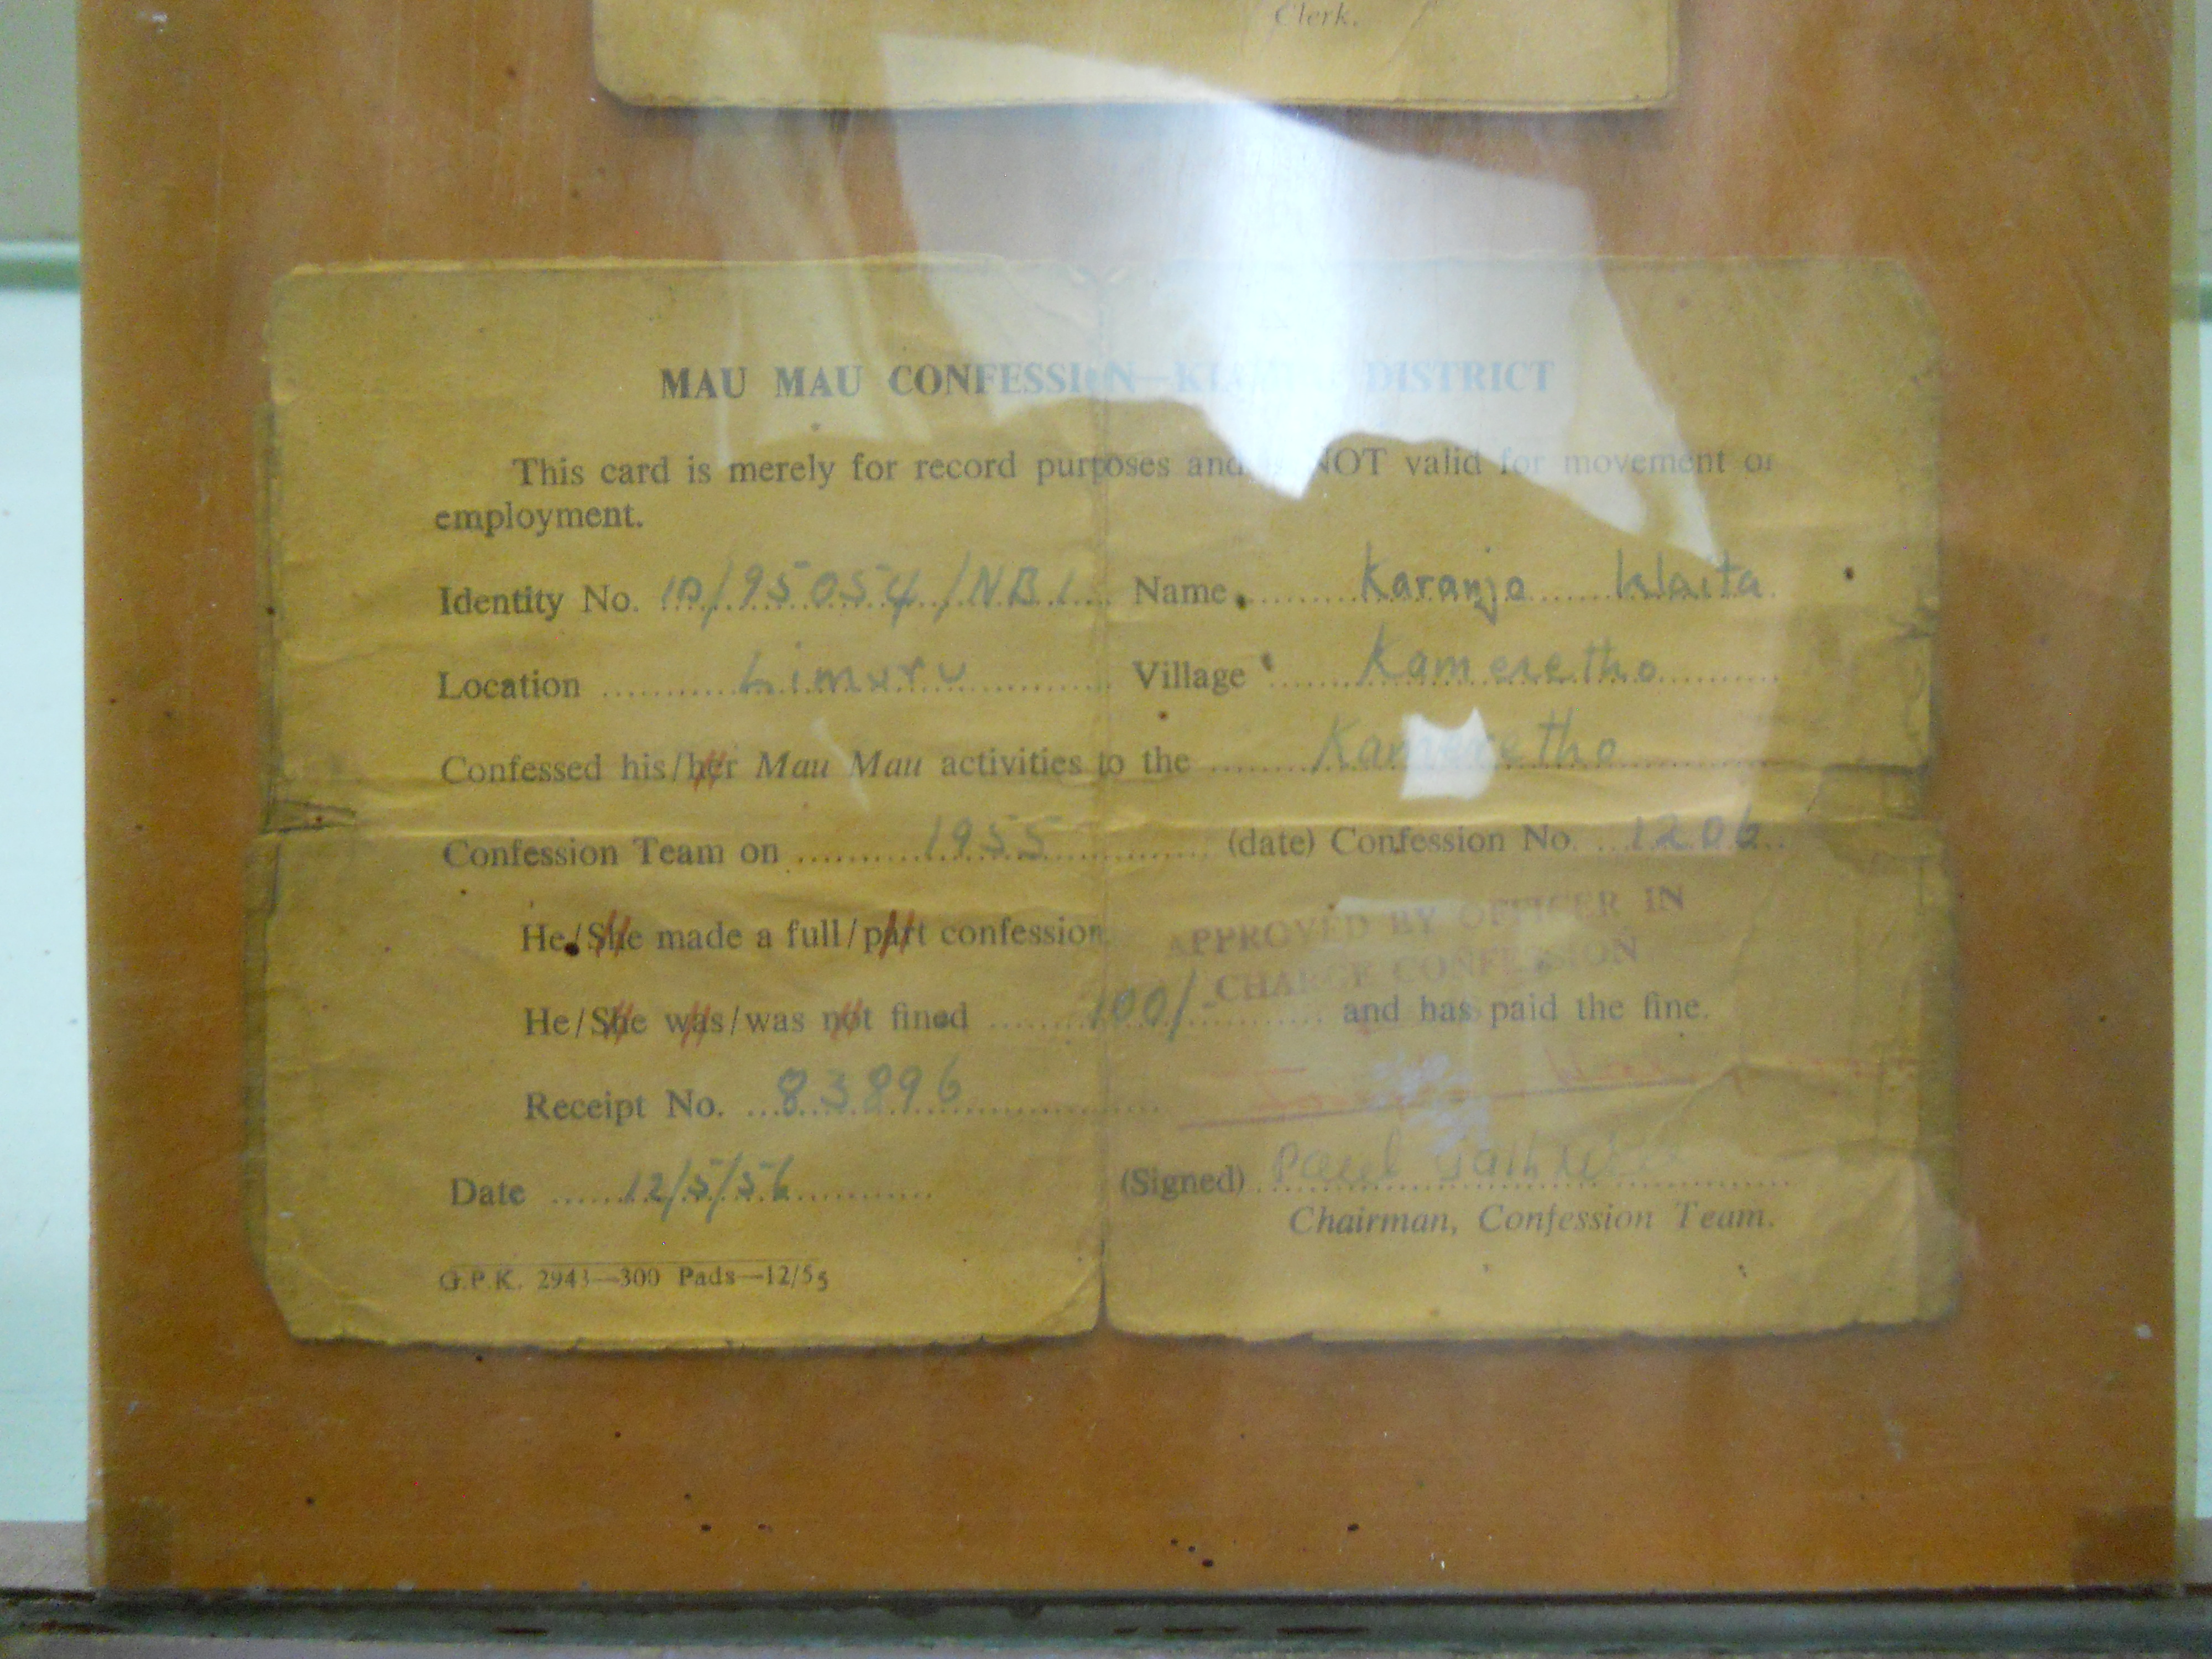 Clerk.
MAU MAU CONFESSION—KIAMBU DISTRICT
This card is merely for record purposes and is NOT valid for movement or
employment.
Identity No. 10/95054/NBI Name Karanjo Waita
Location Limuru Village Kameretho
Confessed his/her Mau Mau activities to the Kameretho
Confession Team on 1955 (date) Confession No. 1206
He/She made a full/part confession
APPROVED BY OFFICER IN
CHARGE CONFESSION
He/She was/was not fined 100/- and has paid the fine.
Receipt No. 83896
Date 12/5/56 (Signed) Paul
Chairman, Confession Team.
G.P.K. 2943—300 Pads—12/55